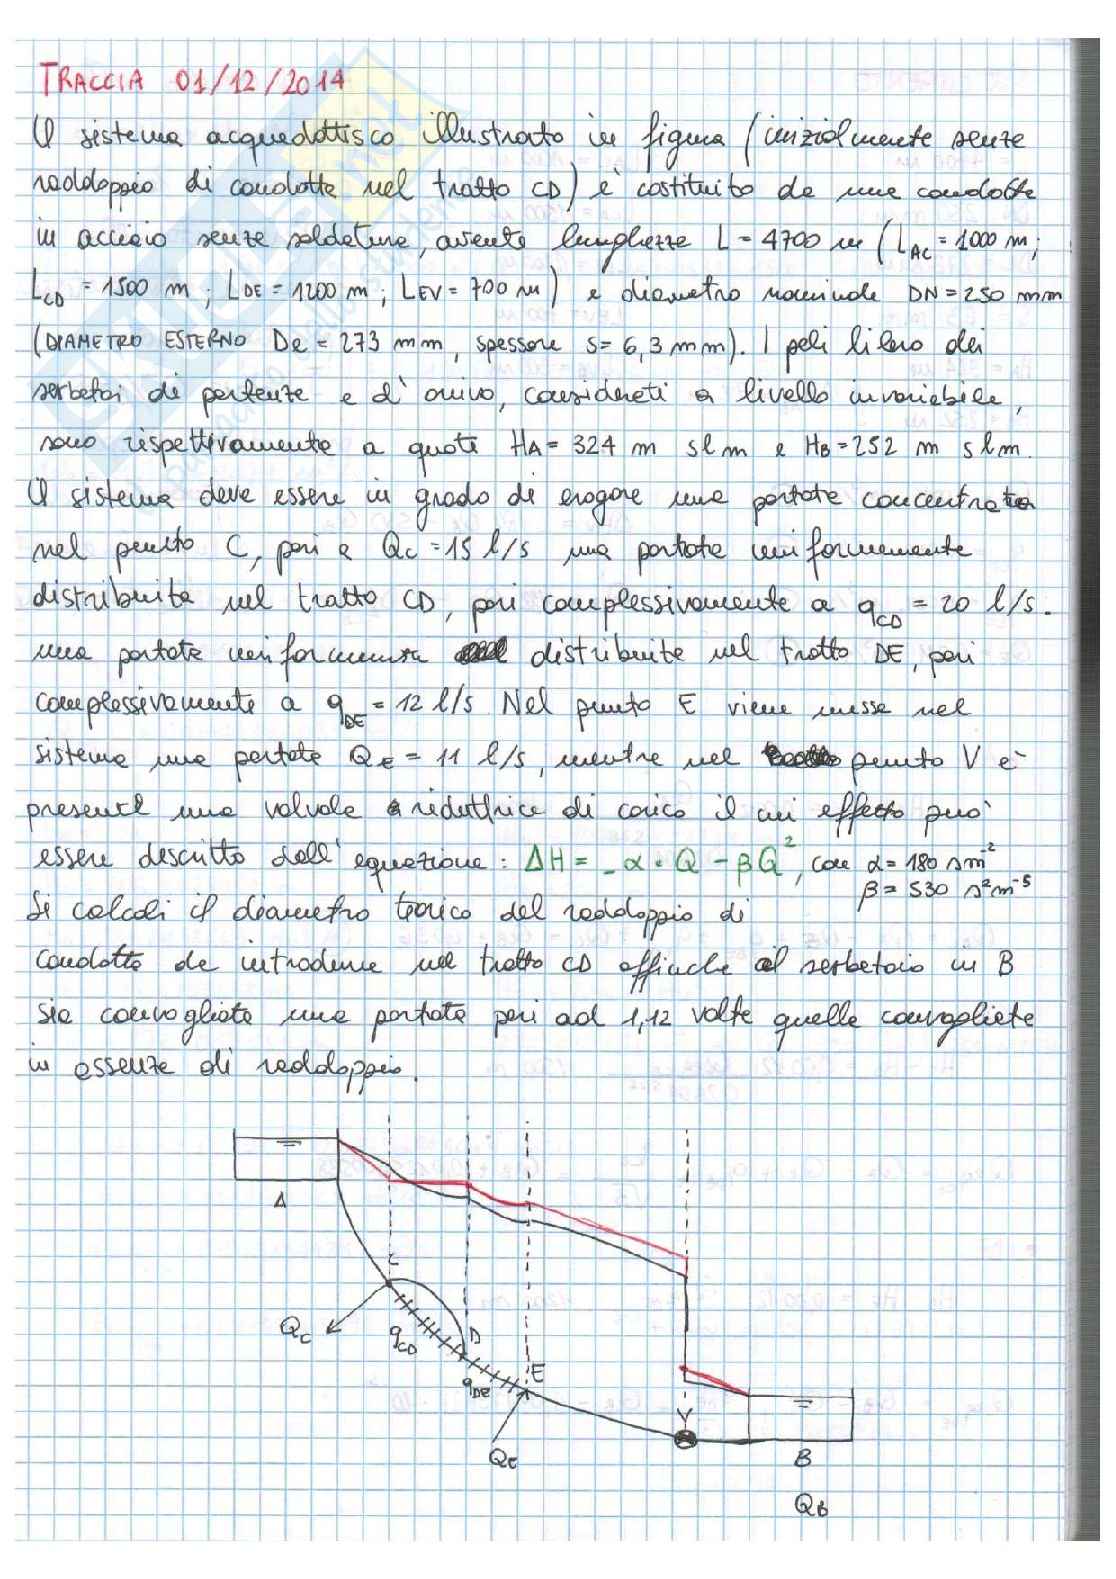 TRACCIA 01/12/2014
Il sistema acquedottisco illustrato in figura (inizialmente senza
raddoppio di condotta nel tratto CD) è costituito da una condotta
in acciaio senza saldatura, avente lunghezza L = 4700 m (LAC = 1000 m;
LCD = 1500 m; LDE = 1200 m; LEV = 700 m) e diametro nominale DN = 250 mm
(DIAMETRO ESTERNO De = 273 mm, spessore s = 6,3 mm). I peli libero dei
serbatoi di partenza e d'arrivo, considerati a livello invariabile,
sono rispettivamente a quote HA = 324 m slm e HB = 252 m slm.
Il sistema deve essere in grado di erogare una portata concentrata
nel punto C, pari a QC = 15 l/s una portata uniformemente
distribuita nel tratto CD, pari complessivamente a qCD = 20 l/s.
una portata distribuita nel tratto DE, pari
complessivamente a qDE = 12 l/s Nel punto E viene messa nel
sistema una portata QE = 11 l/s, mentre nel punto V è
presente una valvola riduttrice di carico il cui effetto può
essere descritto dall'equazione: ΔH = -α·Q - βQ², con α = 180 s m⁻²
β = 530 s² m⁻⁵
Si calcoli il diametro teorico del raddoppio di
condotta da introdurre nel tratto CD affinchè al serbatoio in B
sia convogliata una portata pari ad 1,12 volte quella convogliata
in assenza di raddoppio.
A
C
QC
qCD
D
qDE
E
QE
V
B
QB